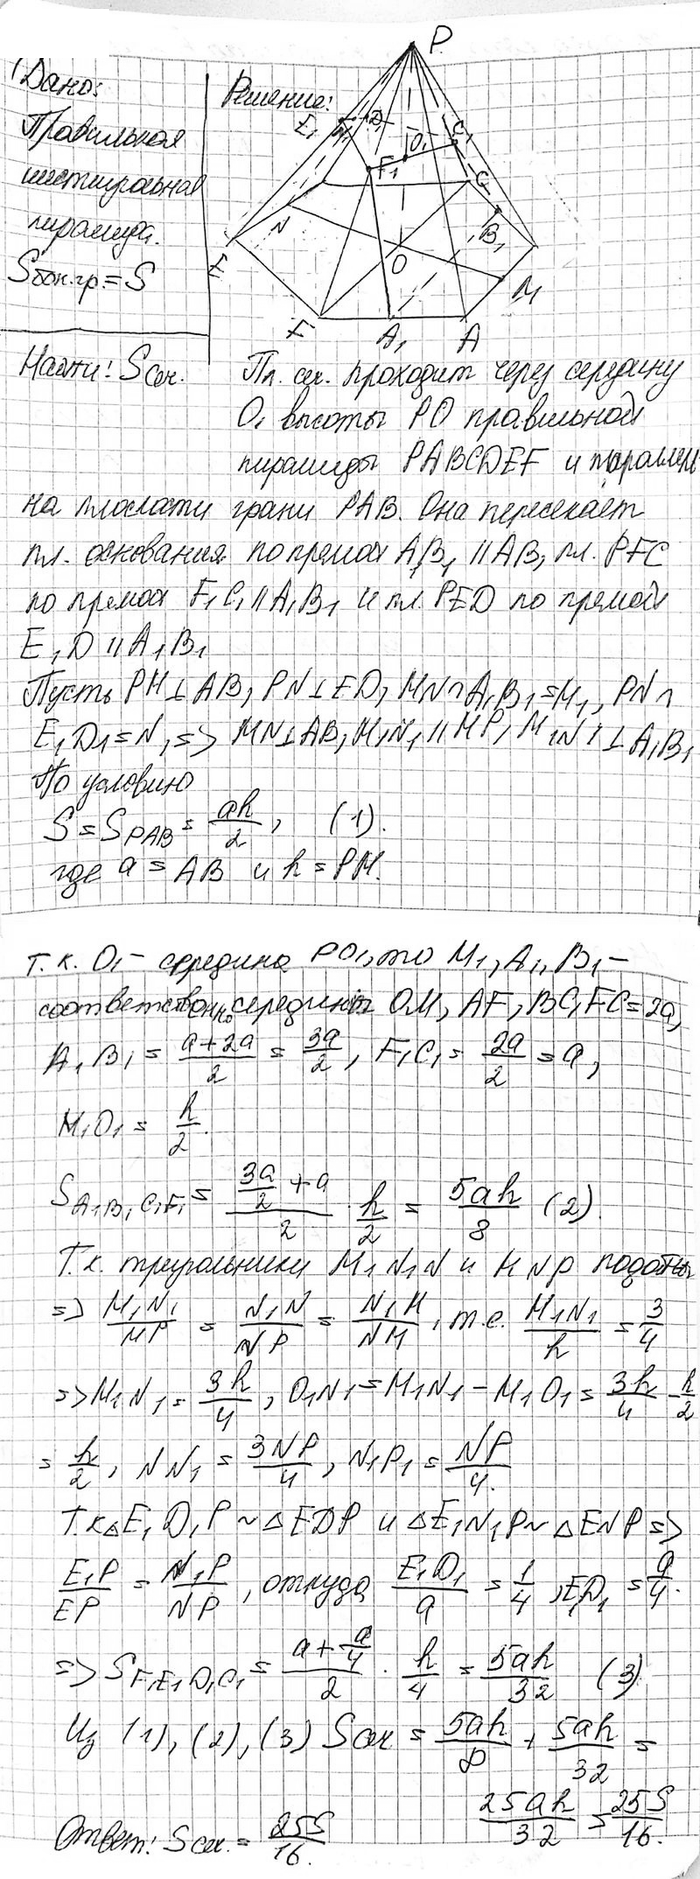 Дано:
Решение:
Правильная
шестиугольная
пирамида.
Sбок.гр. = S
P
E₁
D₁
O₁
C₁
F₁
C
N
B₁
E
O
M
F
A₁
A
Найти: Sсеч.
Пл. сеч. проходит через середину
O₁ высоты PO правильной
пирамиды PABCDEF и параллель
на плоскати грани PAB. Она пересекает
пл. основания по прямой A₁B₁ || AB, пл. PFC
по прямой F₁C₁ || A₁B₁ и пл. PED по прямой
E₁D || A₁B₁
Пусть PM⊥AB, PN⊥ED, MN∩A₁B₁=M₁, PN∩
E₁D₁=N₁ => MN⊥AB, M₁N₁ || MP, M₁N₁⊥A₁B₁
По условию
S = S_PAB = ah/2, (1).
где a = AB и h = PM.
т.к. O₁ - середина PO, то M₁, A₁, B₁ -
соответственно середины OM, AF, BC, FC=2a,
A₁B₁ = (a+2a)/2 = 3a/2, F₁C₁ = 2a/2 = a,
M₁O₁ = h/2.
S_A₁B₁C₁F₁ = (3a/2 + a)/2 · h/2 = 5ah/8 (2).
Т.к. треугольники M₁N₁N и MNP подобны
=> M₁N₁/MP = N₁N/NP = N₁M/NM, т.е. M₁N₁/h = 3/4
=> M₁N₁ = 3h/4, O₁N₁ = M₁N₁ - M₁O₁ = 3h/4 - h/2
= h/2, NN₁ = 3NP/4, N₁P₁ = NP/4.
Т.к △E₁D₁P ~ △EDP и △E₁N₁P ~ △ENP =>
E₁P/EP = N₁P/NP, откуда E₁D₁/a = 1/4, E₁D₁ = a/4.
=> S_F₁E₁D₁C₁ = (a + a/4)/2 · h/4 = 5ah/32 (3)
Из (1), (2), (3) Sсеч = 5ah/8 + 5ah/32 =
25ah/32 = 25S/16.
Ответ: Sсеч. = 25S/16.